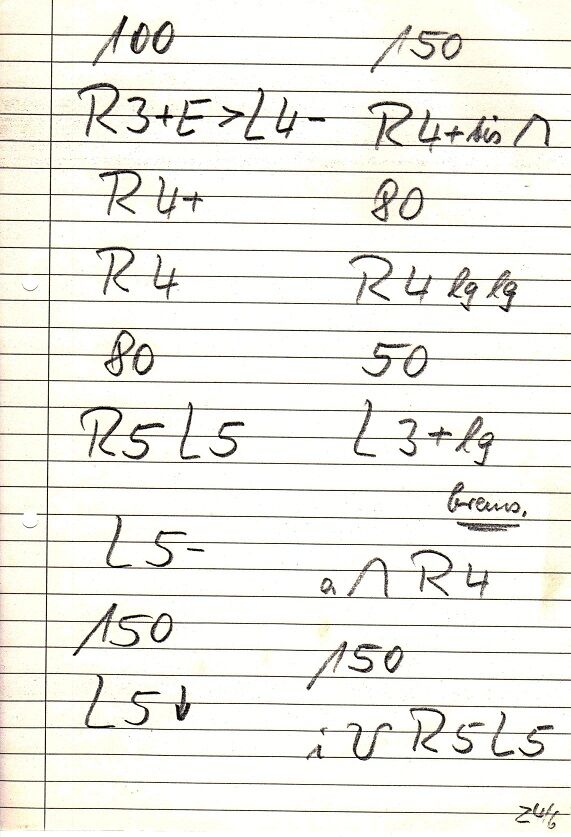 100
R3+E>L4-
R4+
R4
80
R5 L5
L5-
150
L5↓
150
R4+bis ∩
80
R4 lg lg
50
L3+lg
brems.
a ∩ R4
150
i ∪ R5 L5